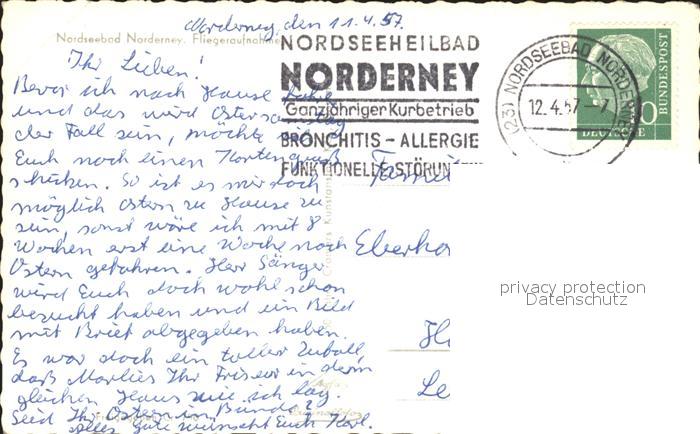 Norderney, den 11.4.57.
Nordseebad Norderney. Fliegeraufnahme
Ihr Lieben!
Bevor ich nach Hause
und das wird
der Fall sein, möchte
Euch noch einen Kartengruß
schicken. So ist es mir doch
möglich Ostern zu Hause zu
sein, sonst wäre ich mit 8
Wochen erst eine Woche nach
Ostern gefahren. Herr Sänger
wird Euch doch wohl schon
besucht haben und ein Bild
mit Brief abgegeben haben.
Es war doch ein toller Zufall,
daß Marlies Ihr Friseur in dem
gleichen Haus wie ich lag.
Seid Ihr Ostern in Bünde?
Alles Gute wünscht Euch Karl.
NORDSEEHEILBAD
NORDERNEY
Ganzjähriger Kurbetrieb
BRONCHITIS – ALLERGIE
FUNKTIONELLE STÖRUN
(23) NORDSEEBAD NORDERNEY
12.4.57 – 7
DEUTSCHE
BUNDESPOST
Famil
Eberha
Le
privacy protection
Datenschutz